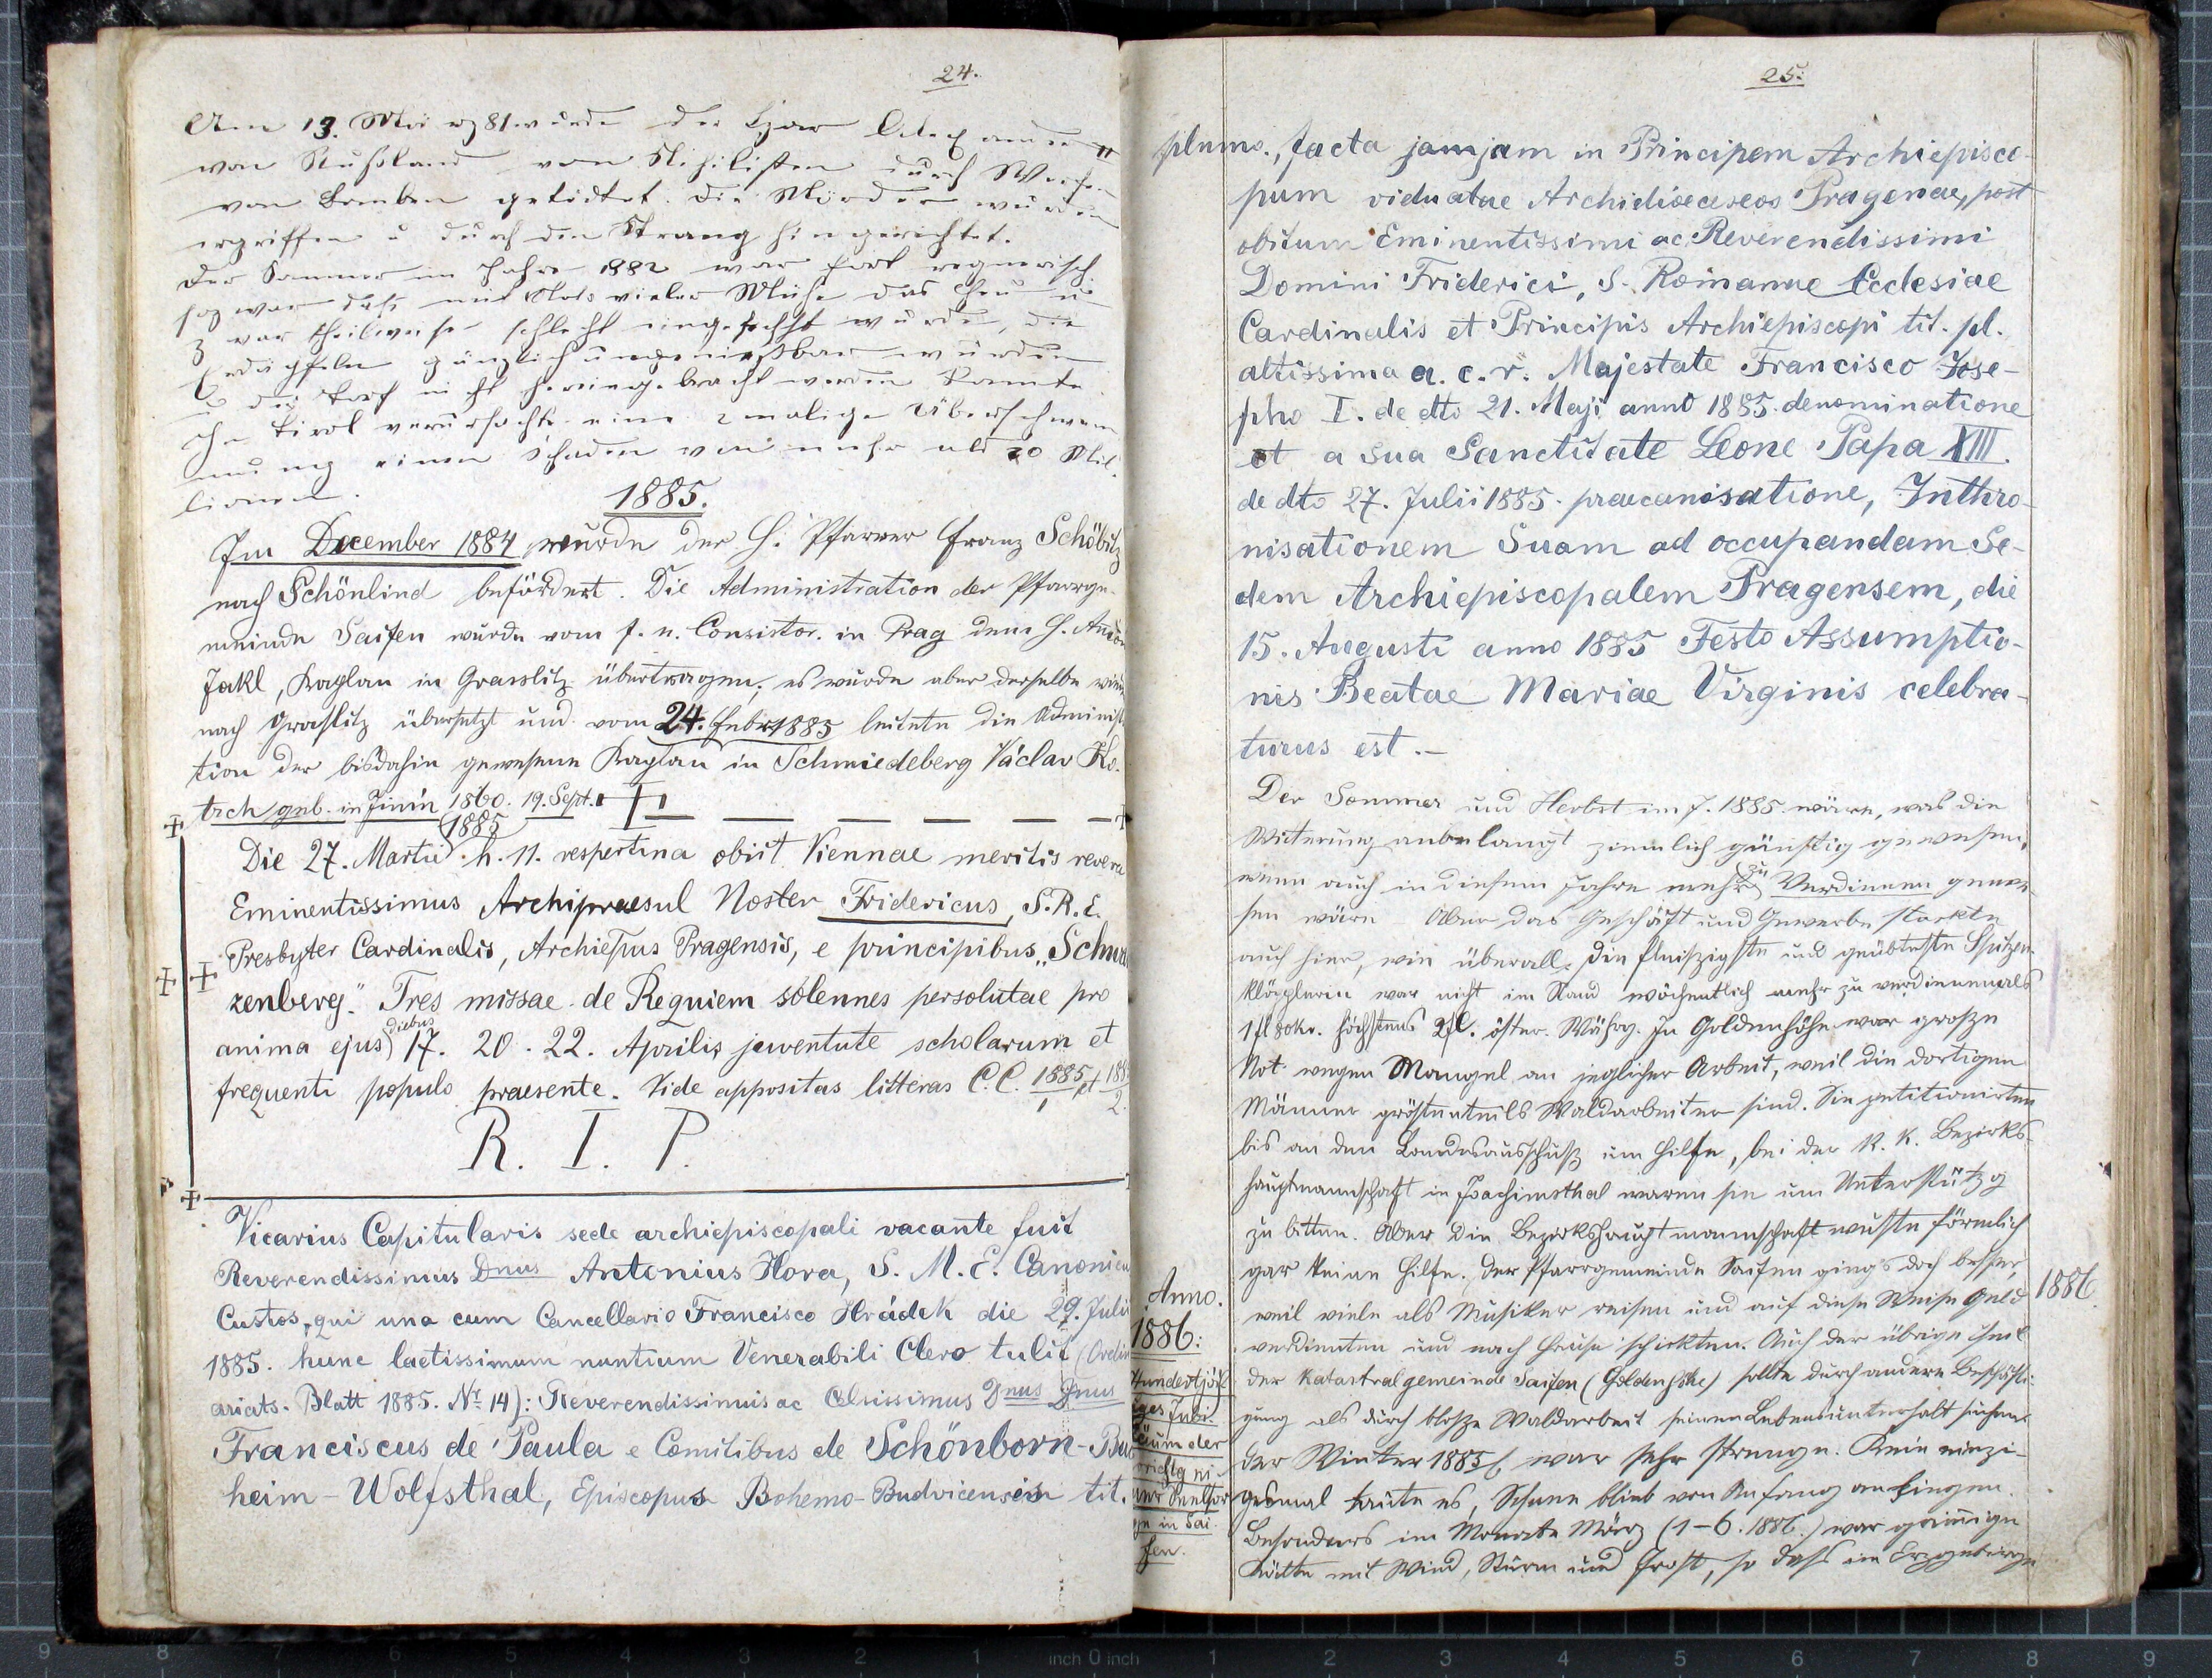 24.
Am 13. März 81 wurde der Czar Alexander II
von Rußland von Nihilisten durch Werfen
von Bomben getödtet. Die Mörder wurden
ergriffen u durch den Strang hingerichtet.
Der Sommer im Jahre 1882 war fort regnerisch
so zwar daß mit Noth vieler Mühe das Heu u
zwar theilweise schlecht eingefechst wurde, die
Erdäpfeln gänzlich ungenießbar wurden
u der Torf nicht hereingebracht werden konnte
In Tirol verursachte eine 2malige Überschwem
mung einen Schaden von mehr als 20 Mil
lionen.
1885.
Im December 1884 wurde der H. Pfarrer Franz Schöbitz
nach Schönlind befördert. Die Administration der Pfarrge-
meinde Saifen wurde vom f. e. Consistor. in Prag dem H. Anton
Jakl, Kaplan in Grasslitz übertragen; es wurde aber derselbe wied
nach Graslitz übersetzt und vom 24. Feber 1885 leitete die Administ
tion der bisdahin gewesene Kaplan in Schmiedeberg Václav Ko-
trch geb. in Jinín 1860. 19. Sept.
Die 27. Martii 1885 h. 11. vespertina obiit Viennae meritis revera
Eminentissimus Archipraesul Noster Fridericus, S. R. E.
Presbyter Cardinalis, Archiepus Pragensis, e principibus „Schwar
zenberg." Tres missae de Requiem solennes persolutae pro
anima ejus diebus 17. 20. 22. Aprilis juventute scholarum et
frequenti populo praesente. Vide appositas litteras C. C. 1885/1 et 1885/2.
R. I. P.
Vicarius Capitularis sede archiepiscopali vacante fuit
Reverendissimus Dnus Antonius Hora, S. M. E. Canonicu
Custos, qui una cum Cancellario Francisco Hrádek die 29. Julii
1885. hunc laetissimum nuntium Venerabili Clero tulit (Ordin
ariats-Blatt 1885. Nr. 14): Reverendissimus ac Celsissimus Dnus Dnus
Franciscus de Paula e Comitibus de Schönborn-Buch
heim-Wolfsthal, Episcopus Bohemo-Budvicensis tit.
25.
plnmo., facta jamjam in Principem Archiepisco-
pum viduatae Archidioeceseos Pragenae, post
obitum Eminentissimi ac Reverendissimi
Domini Friderici, S. Romanae Ecclesiae
Cardinalis et Principis Archiepiscopi tit. pl.
altissima a. c. r. Majestate Francisco Jose-
pho I. de dto 21. Maji anno 1885. denominatione
et a Sua Sanctitate Leone Papa XIII.
de dto 27. Julii 1885. praecanisatione, Inthro-
nisationem Suam ad occupandam Se-
dem Archiepiscopalem Pragensem, die
15. Augusti anno 1885 Festo Assumptio-
nis Beatae Mariae Virginis celebra-
turus est.-
Der Sommer und Herbst im J. 1885 wäre, was die
Witerung anbelangt ziemlich günstig gewesen,
wenn auch in diesem Jahre mehr zu Verdienen gewe-
sen wäre. Aber das Geschäft und Gewerbe stockte
auch hier, wie überall. Die fleißzigste und geübteste Spitzen-
klöpplerin war nicht im Stand wöchentlich mehr zu verdienen als
1 fl 80 kr. höchstens 2 fl. öster. Währg. In Goldenhöhe war grosze
Not wegen Mangel an jeglicher Arbeit, weil die dortigen
Männer gröstenteils Waldarbeiter sind. Sie petitionirten
bis an den Landesausschuß um Hilfe, bei der K. K. Bezirks-
hauptmannschaft in Joachimsthal waren sie um Unterstützg
zu bitten. Aber die Bezirkshauptmannschaft wuste förmlich
gar keine Hilfe. Der Pfarrgemeinde Saifen ging's doch besser,
weil viele als Musiker reisen und auf diese Weise Geld
verdienten und nach Hause schickten. Auch der übrige Theil
der Katastralgemeinde Saifen (Goldenhöhe) sollte durch andere Beschäfti-
gung als durch blosze Waldarbeit seinen Lebensunterhalt suchen.
Der Winter 1885/6 war sehr strenge. Kein einzi-
gesmal taute es, Schnee blieb von Anfang an liegen.
Besonders im Monate März (1-6. 1886.) war grimmige
Kälte mit Wind, Sturm und Frost, so daß im Erzgebirge
1886.
Anno.
1886:
Hundertjäh
iges Jubi-
läum der